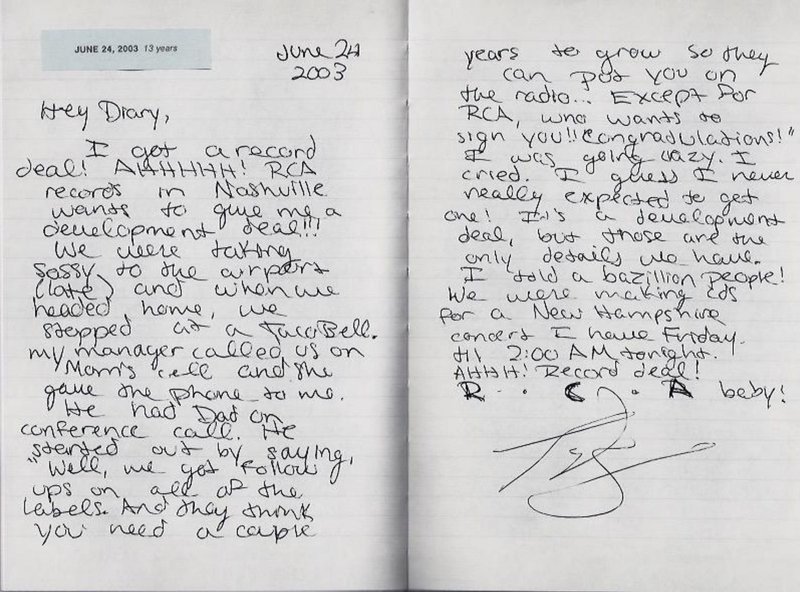 JUNE 24, 2003 13 years
June 24
2003
Hey Diary,
I got a record
deal! AHHHHH! RCA
records in Nashville
wants to give me a
development deal!!!
We were taking
Sassy to the airport
(late) and when we
headed home, we
stopped at a Taco Bell.
my manager called us on
Mom's cell and she
gave the phone to me.
He had Dad on
conference call. He
started out by saying,
"Well, we got follow
ups on all of the
labels. And they think
you need a couple
years to grow so they
can put you on
the radio... Except for
RCA, who wants to
sign you!! Congradulations!"
I was going crazy. I
cried. I guess I never
really expected to get
one! It's a development
deal, but those are the
only details we have.
I told a bazillion people!
We were making cds
for a New Hampshire
concert I have Friday.
til 2:00 AM tonight.
AHHH! Record deal!
R . C . A baby!